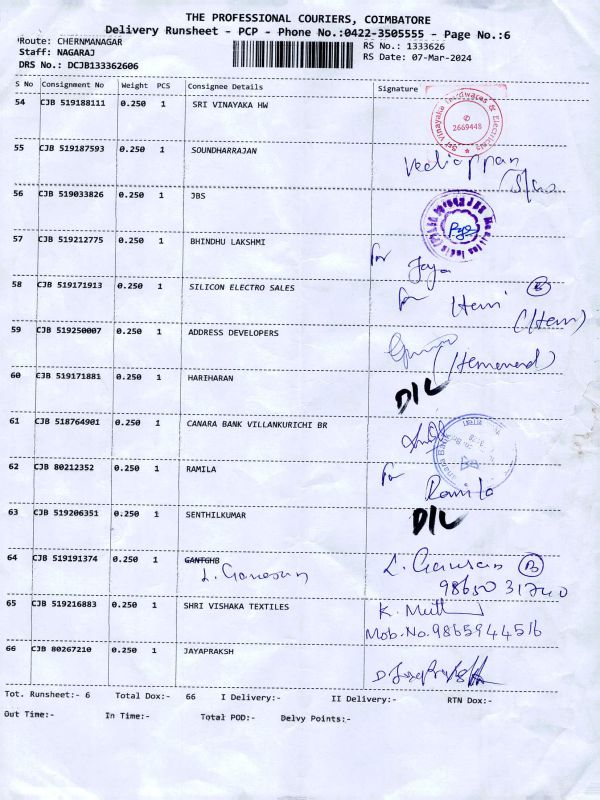 THE PROFESSIONAL COURIERS, COIMBATORE
Delivery Runsheet - PCP - Phone No.:0422-3505555 - Page No.:6
Route: CHERNMANAGAR
RS No.: 1333626
Staff: NAGARAJ
RS Date: 07-Mar-2024
DRS No.: DCJB133362606
S No Consignment No Weight PCS Consignee Details Signature
54 CJB 519188111 0.250 1 SRI VINAYAKA HW
Sri Vinayaka Hardwares & Electricals
2669448
55 CJB 519187593 0.250 1 SOUNDHARRAJAN
56 CJB 519033826 0.250 1 JBS
57 CJB 519212775 0.250 1 BHINDHU LAKSHMI
for Jaya
58 CJB 519171913 0.250 1 SILICON ELECTRO SALES
for Hem
(Hem)
59 CJB 519250007 0.250 1 ADDRESS DEVELOPERS
60 CJB 519171881 0.250 1 HARIHARAN
D/L
61 CJB 518764901 0.250 1 CANARA BANK VILLANKURICHI BR
62 CJB 80212352 0.250 1 RAMILA
for Ramila
63 CJB 519206351 0.250 1 SENTHILKUMAR
D/L
64 CJB 519191374 0.250 1 GANTGHB
L. Ganesan
L. Ganesan B
98650 31740
65 CJB 519216883 0.250 1 SHRI VISHAKA TEXTILES
K. Mutt
Mob.No.9865944516
66 CJB 80267210 0.250 1 JAYAPRAKSH
Tot. Runsheet:- 6 Total Dox:- 66 I Delivery:- II Delivery:- RTN Dox:-
Out Time:- In Time:- Total POD:- Delvy Points:-